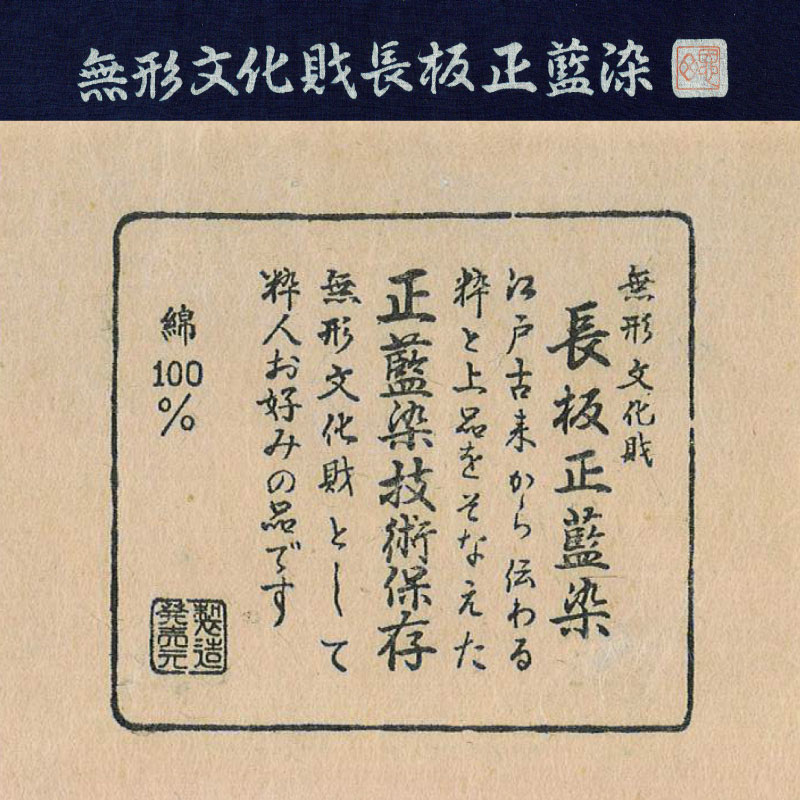 無形文化財長板正藍染
無形文化財
長板正藍染
江戸古来から伝わる
粋と上品をそなえた
正藍染技術保存
無形文化財として
粋人お好みの品です
綿100%
製造
発売元